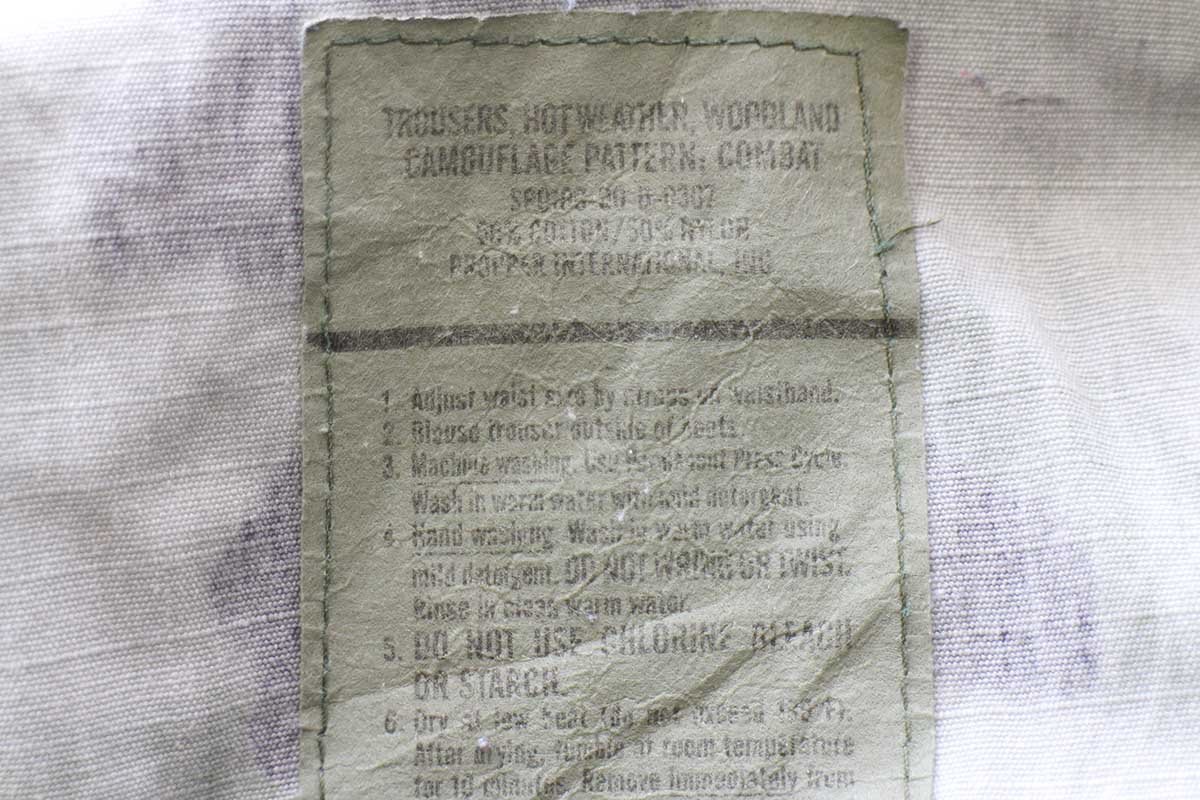 TROUSERS, HOT WEATHER, WOODLAND
CAMOUFLAGE PATTERN: COMBAT
50% COTTON/50% NYLON
PROPPER INTERNATIONAL, INC
1. Adjust waist size by straps on waistband.
2. Blouse trouser outside of boots.
3. Machine washing. Use Permanent Press Cycle.
Wash in warm water with mild detergent.
4. Hand washing. Wash in warm water using
mild detergent. DO NOT WRING OR TWIST.
Rinse in clean warm water.
5. DO NOT USE CHLORINE BLEACH
OR STARCH.
6. Dry at low heat (do not exceed
After drying, tumble at room temperature
for 10 minutes. Remove immediately from